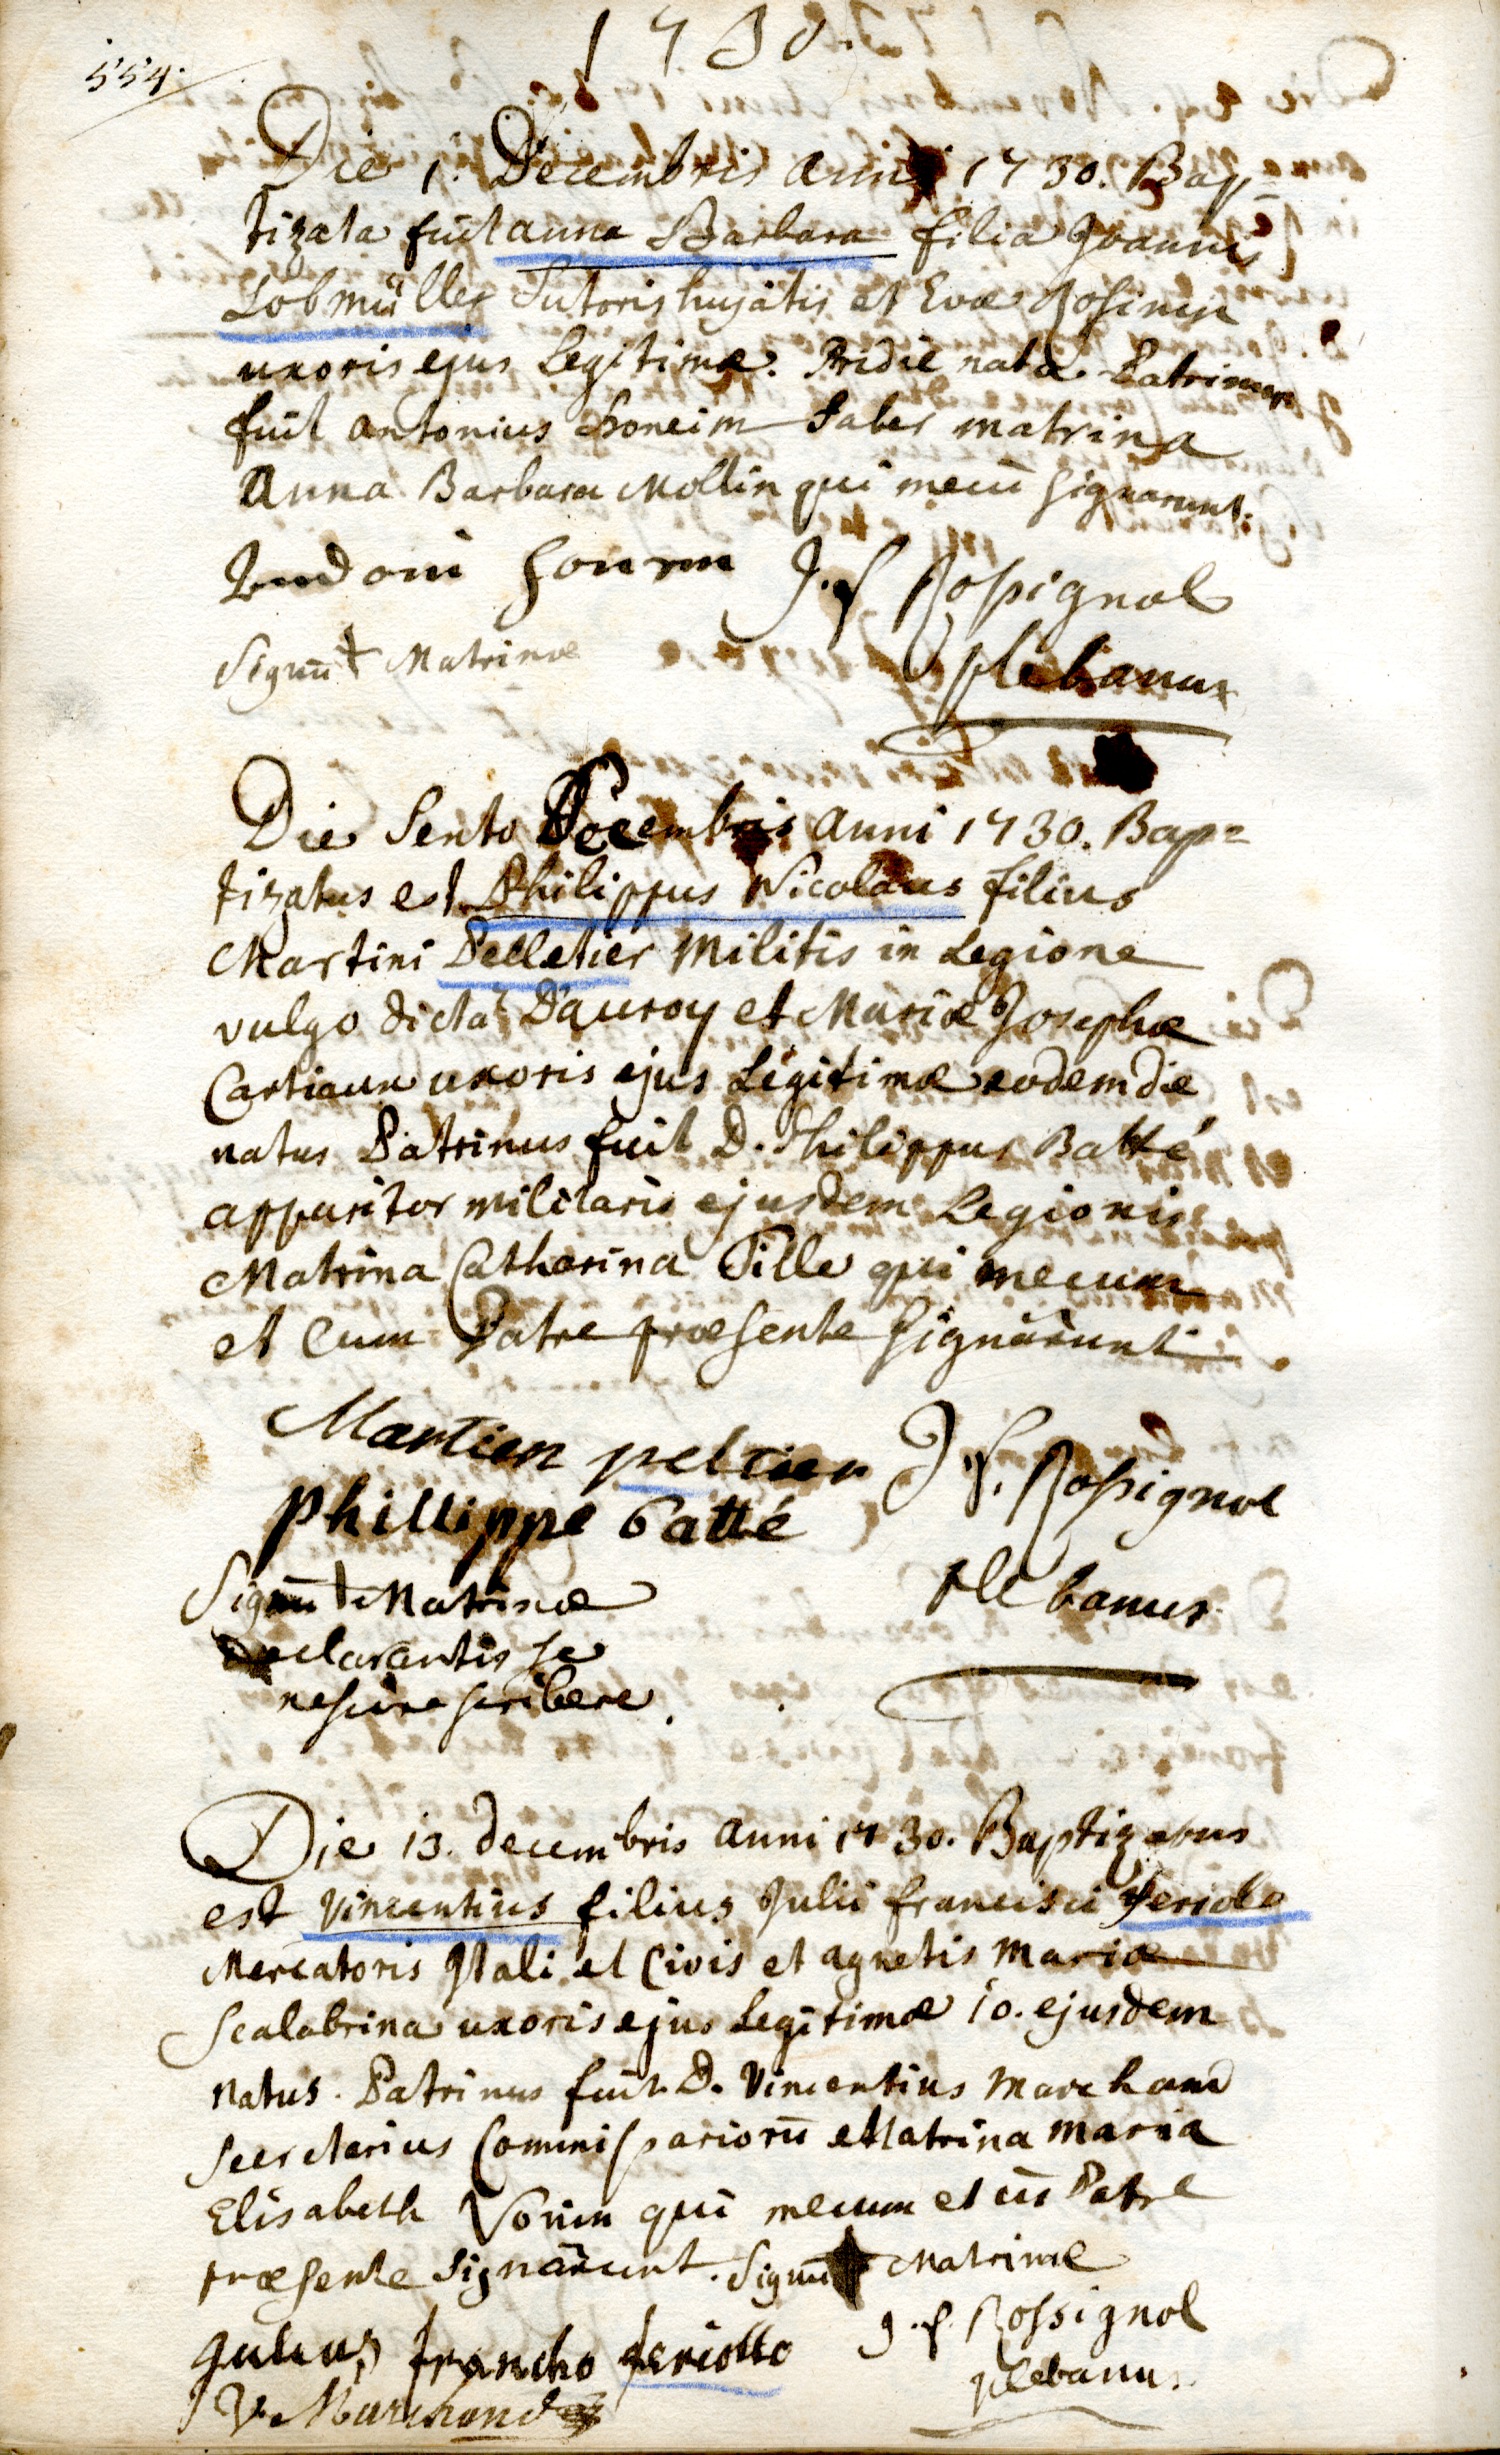 1730.
554.
Die 1. Decembris anni 1730. Bap=
tizata fuit anna Barbara filia Joannis
Lobmüller Sutoris hujatis et Evae Rosinin
uxoris ejus Legitimae. Pridie nata Patrinus
fuit antonius honeim faber matrina
Anna Barbara Mollin qui mecū signarunt.
J. f Rossignol
Signū + Matrinae
plebanus
Die Sexto Decembris anni 1730. Bap=
tizatus est Philippus Nicolaus filius
Martini Pelletier Militis in Legione
vulgo dicta D'auroy et Mariae Josephae
uxoris ejus Legitimae eodem die
natus Patrinus fuit D. Philippus Batté
apparitor militaris ejusdem Legionis
Matrina Catharina Tille qui mecum
et Cum Patre praesente signarunt.
Martien peltier
J. f. Rossignol
phillippe batté
plebanus
Signū + Matrinae
declarantis se
nescire scribere.
Die 13. decembris anni 1730. Baptizatus
est Vincentius filius Julii francisci feriole
Mercatoris Itali et Civis et agnetis Mariae
Scalabrina uxoris ejus Legitimae 10. ejusdem
natus. Patrinus fuit D. Vincentius Marchand
Secretarius Commissariorū et Matrina Maria
Elisabeth Vonin qui mecum et cū Patre
praesente signârunt. Signū + Matrinae
Julius francho feriotto
J. f. Rossignol
plebanus
V. Marchand